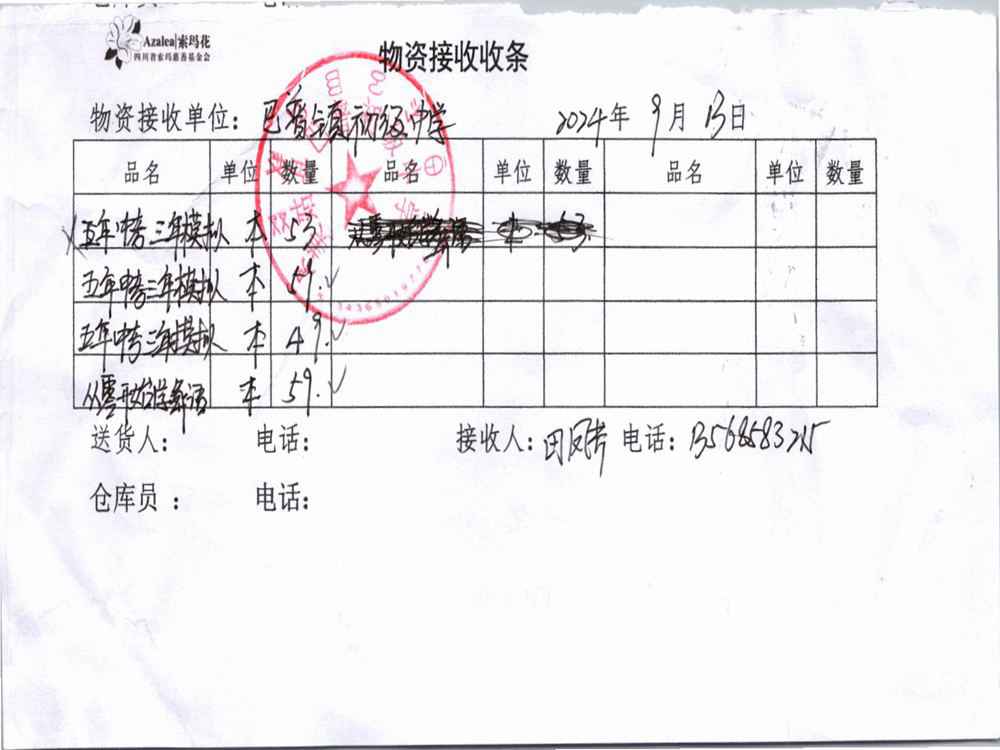 Azalea|索玛花
四川省索玛慈善基金会
物资接收收条
物资接收单位：巴普镇初级中学 2024年 9月 13日
品名 单位 数量 品名 单位 数量 品名 单位 数量
五年中考三年模拟 本 53
五年中考三年模拟 本 59. ✓
五年中考三年模拟 本 49. ✓
从零开始学英语 本 59. ✓
送货人： 电话： 接收人：田凤 电话：
仓库员 ： 电话：